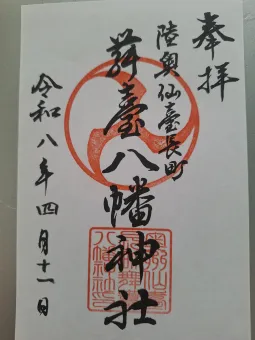 奉拝
陸奥仙臺長町
舞臺八幡神社
令和八年四月十一日